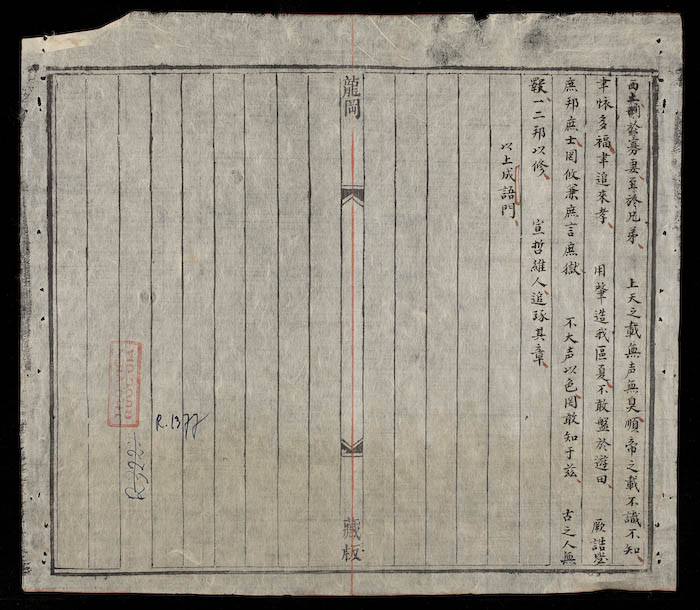 西土刑於寡妻至於兄弟　上天之載無声無臭順帝之載不識不知
聿怀多福聿追來孝　用肇造我區夏不敢盤於遊田　厥誥毖
庶邦庶士罔攸兼庶言庶獄　不大声以色罔敢知于兹　古之人無
斁一二邦以修　宣哲維人追琢其章
以上成語門
龍岡
藏板
R.1377
R.322